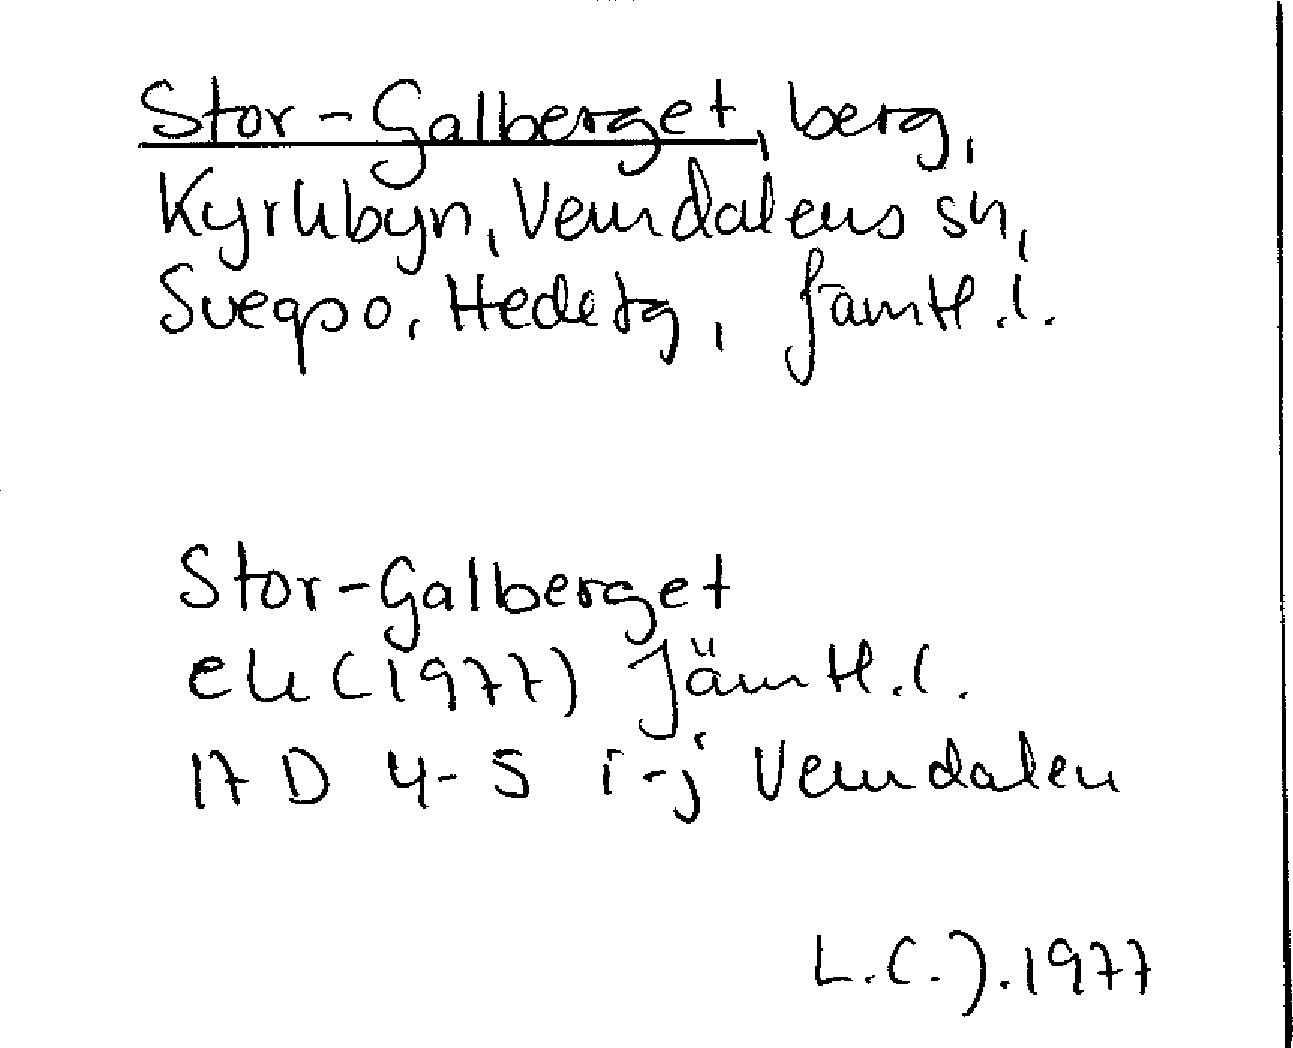 Stor-Galberget, berg,
Kyrkbyn, Vemdalens sn,
Svegpo, Hede tg, Jämtl.l.
Stor-Galberget
ek (1977) Jämtl.l.
17 D 4-5 i-j Vemdalen
L.C.J.1977